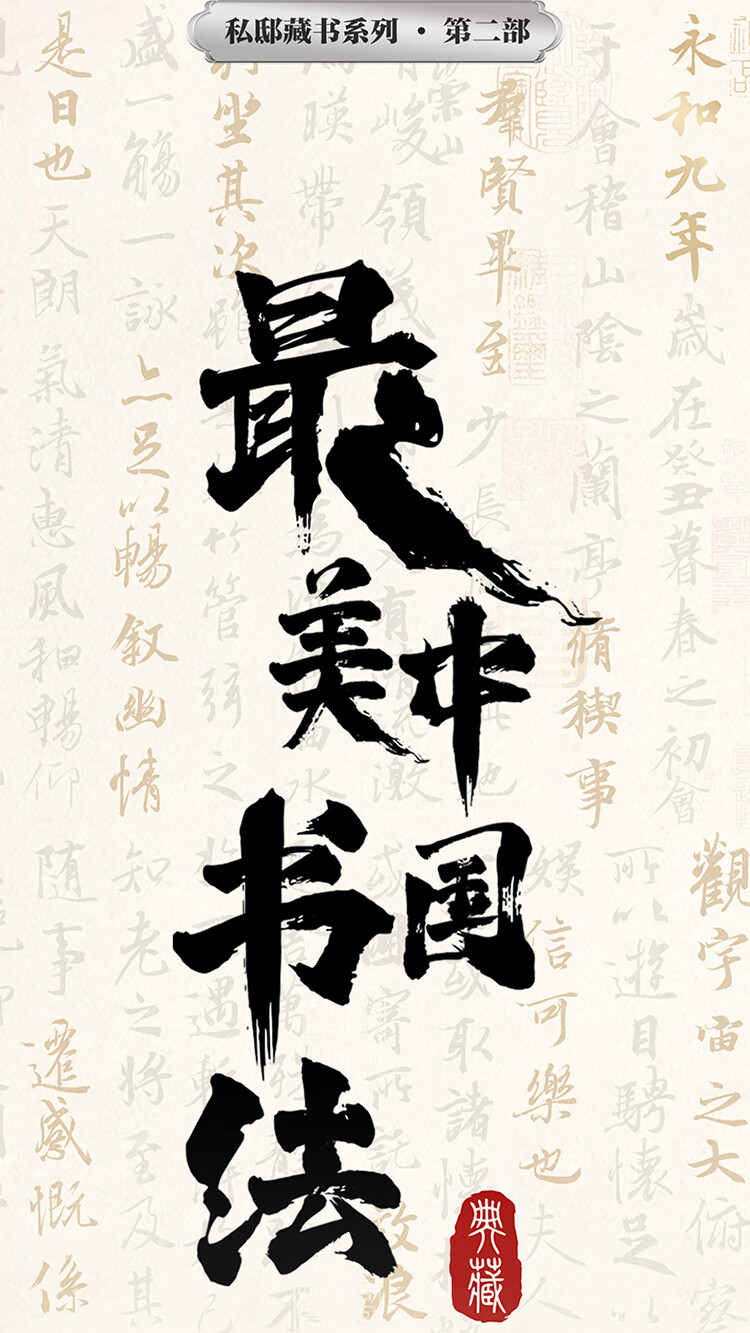 私邸藏书系列·第二部
最美中国书法
典藏
永和九年歲在癸丑暮春之初會
于會稽山陰之蘭亭脩禊事
羣賢畢至少長
峻領
暎帶
坐其次
管弦之
盛一觴一詠亦足以暢叙幽情
是日也天朗氣清惠風和暢仰
觀宇宙之大俯察
所以遊目騁懷足
娛信可樂也夫人
取諸懷
寄所託放浪
知老之將至及其
隨事遷感慨係